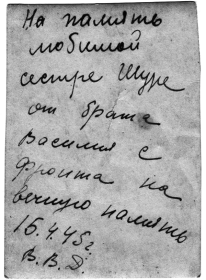 На память
любимой
сестре Шуре
от брата
Василия с
фронта на
вечную память
15.4.45г
В.В.Д.